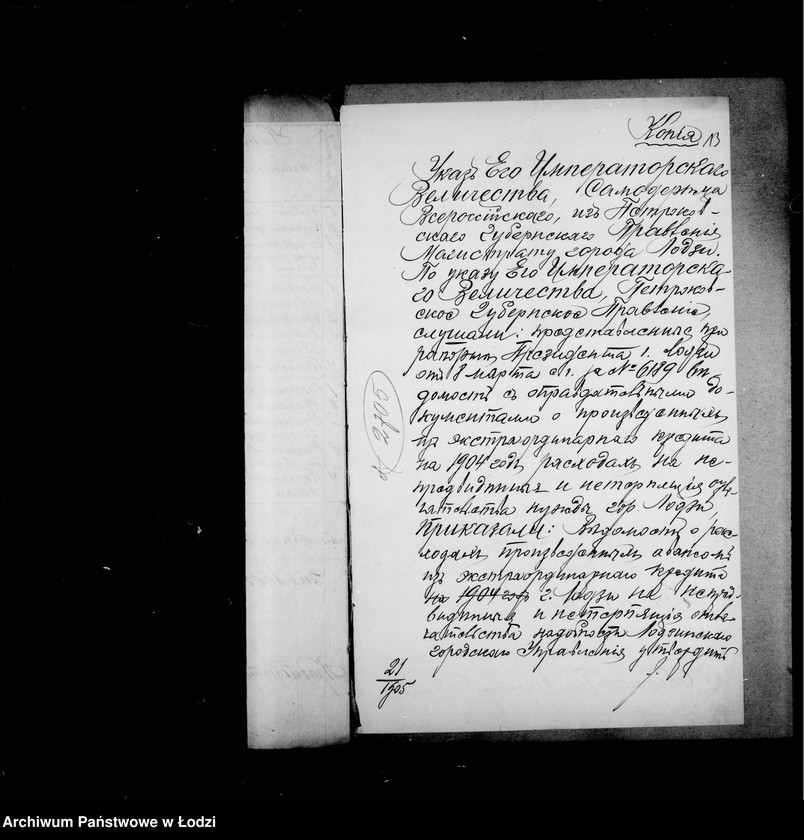 Копія 13
Указъ Его Императорскаго
Величества, Самодержца
Всероссійскаго, изъ Петроков-
скаго Губернскаго Правленія
Магистрату города Лодзи.
По указу Его Императорска-
го Величества, Петроков-
ское Губернское Правленіе,
слушали: представленные при
рапортѣ Президента г. Лодзи
отъ 8 марта с. г. за № 6189 вѣ-
домость съ оправдательными до-
кументами о произведенныхъ
изъ экстраординарнаго кредита
на 1904 годъ расходахъ на не-
предвидѣнныя и нетерпящія отла-
гательства нужды гор. Лодзи,
Приказали: Вѣдомость о рас-
ходахъ произведенныхъ авансомъ
изъ экстраординарнаго кредита
на 1904 годъ г. Лодзи на непред-
видѣнныя и нетерпящія отла-
гательства надобности Лодзинскаго
городскаго Управленія утвердить
21
1905
Archiwum Państwowe w Łodzi